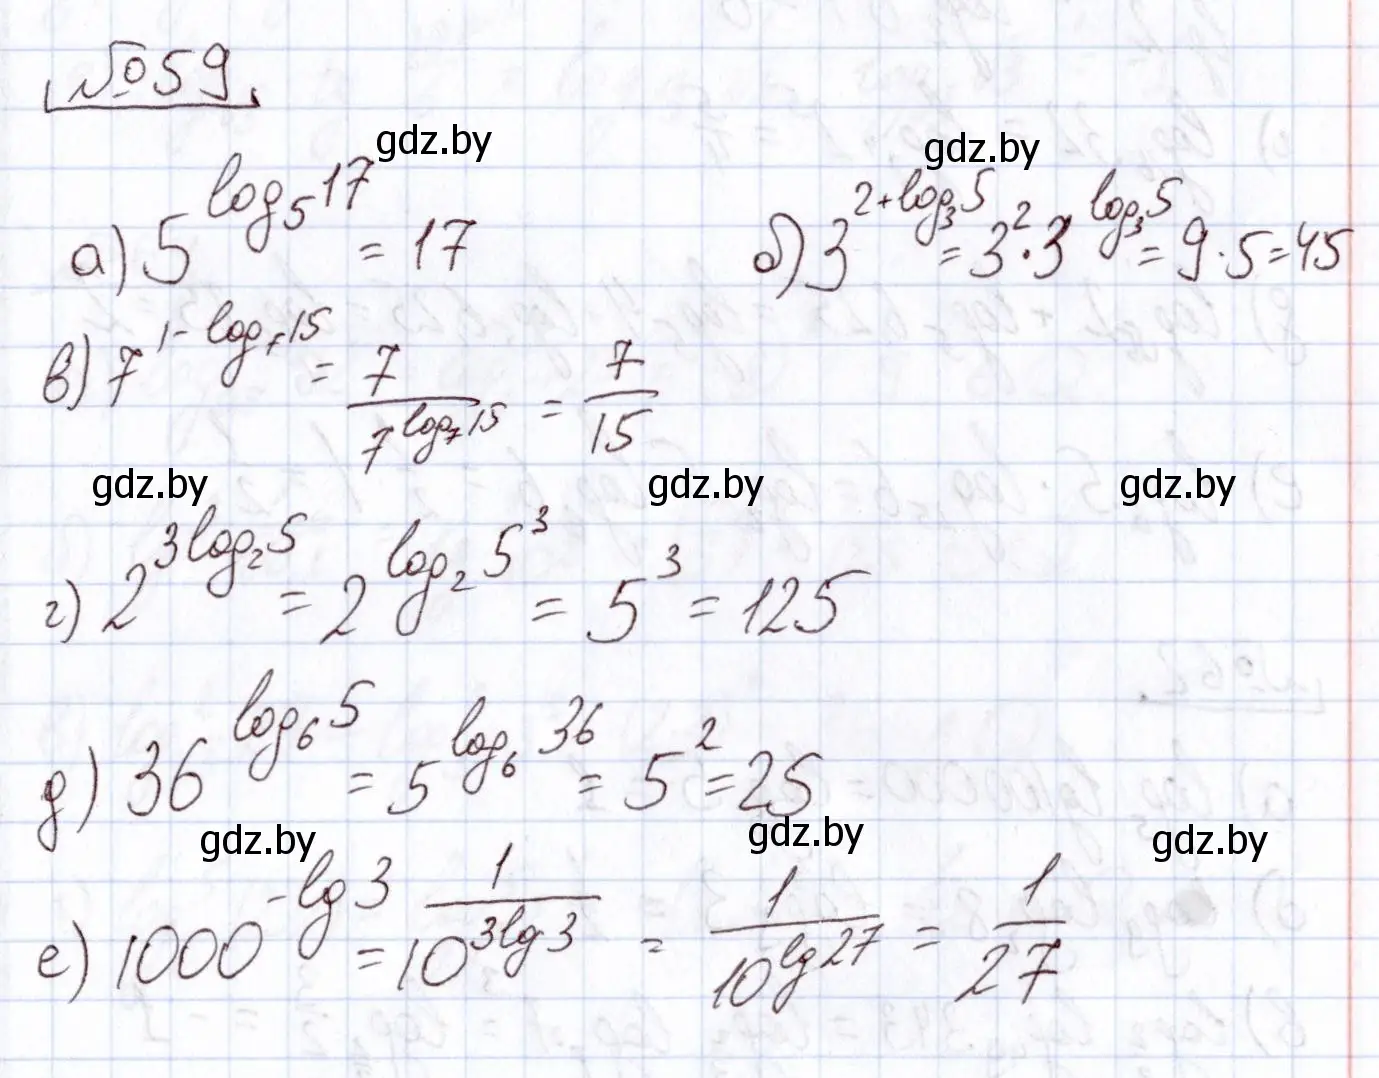 № 59.
gdz.by gdz.by
а) 5^{log_5 17} = 17 б) 3^{2+log_3 5} = 3^2 · 3^{log_3 5} = 9 · 5 = 45
в) 7^{1 - log_7 15} = 7 / 7^{log_7 15} = 7/15
gdz.by gdz.by gdz.by
г) 2^{3 log_2 5} = 2^{log_2 5^3} = 5^3 = 125
д) 36^{log_6 5} = 5^{log_6 36} = 5^2 = 25
gdz.by gdz.by gdz.by
е) 1000^{-lg 3} = 1 / 10^{3 lg 3} = 1 / 10^{lg 27} = 1/27